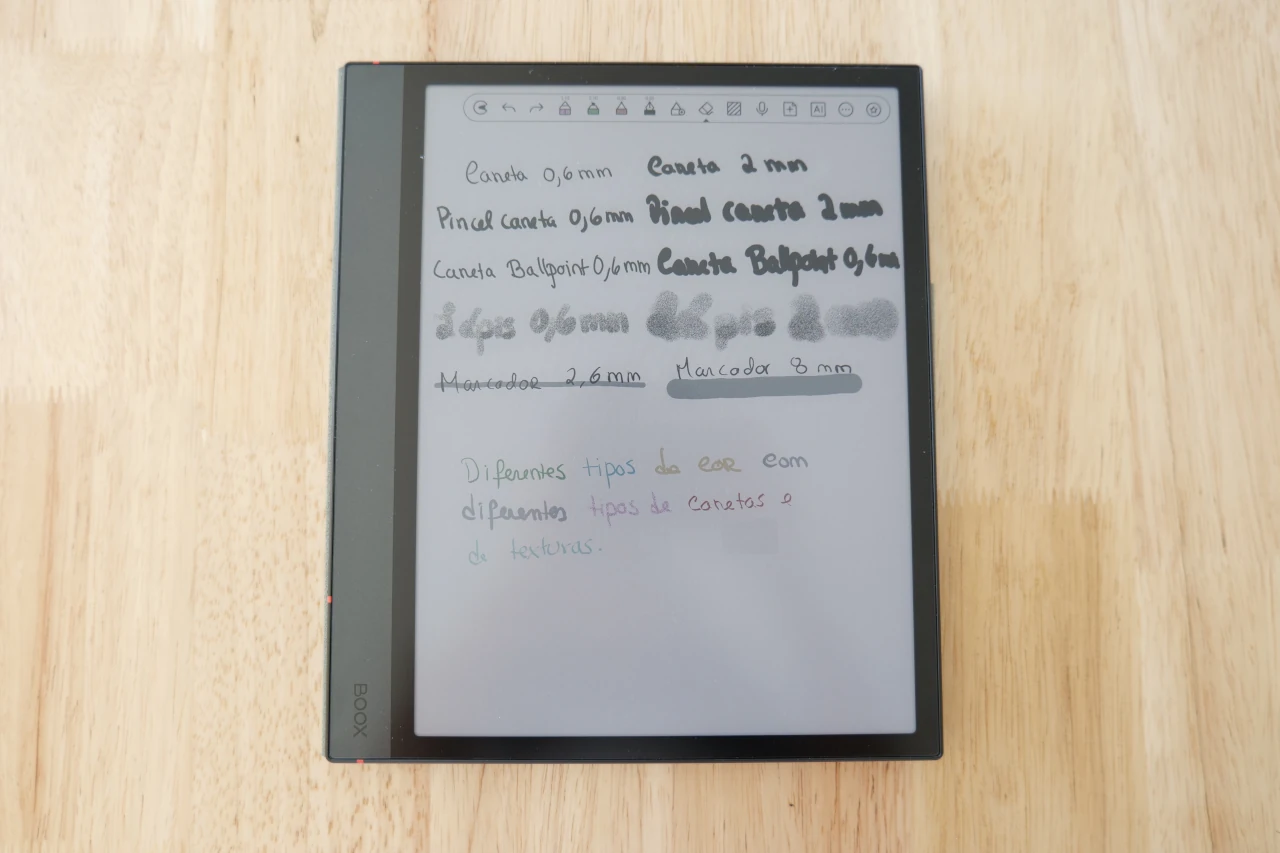 AI
Caneta 0,6 mm Caneta 2 mm
Pincel caneta 0,6 mm Pincel caneta 2 mm
Caneta Ballpoint 0,6 mm Caneta Ballpoint 0,6 m
Lápis 0,6 mm Lápis 2 mm
Marcador 2,6 mm Marcador 8 mm
Diferentes tipos de cor com
diferentes tipos de canetas e
de texturas.
BOOX